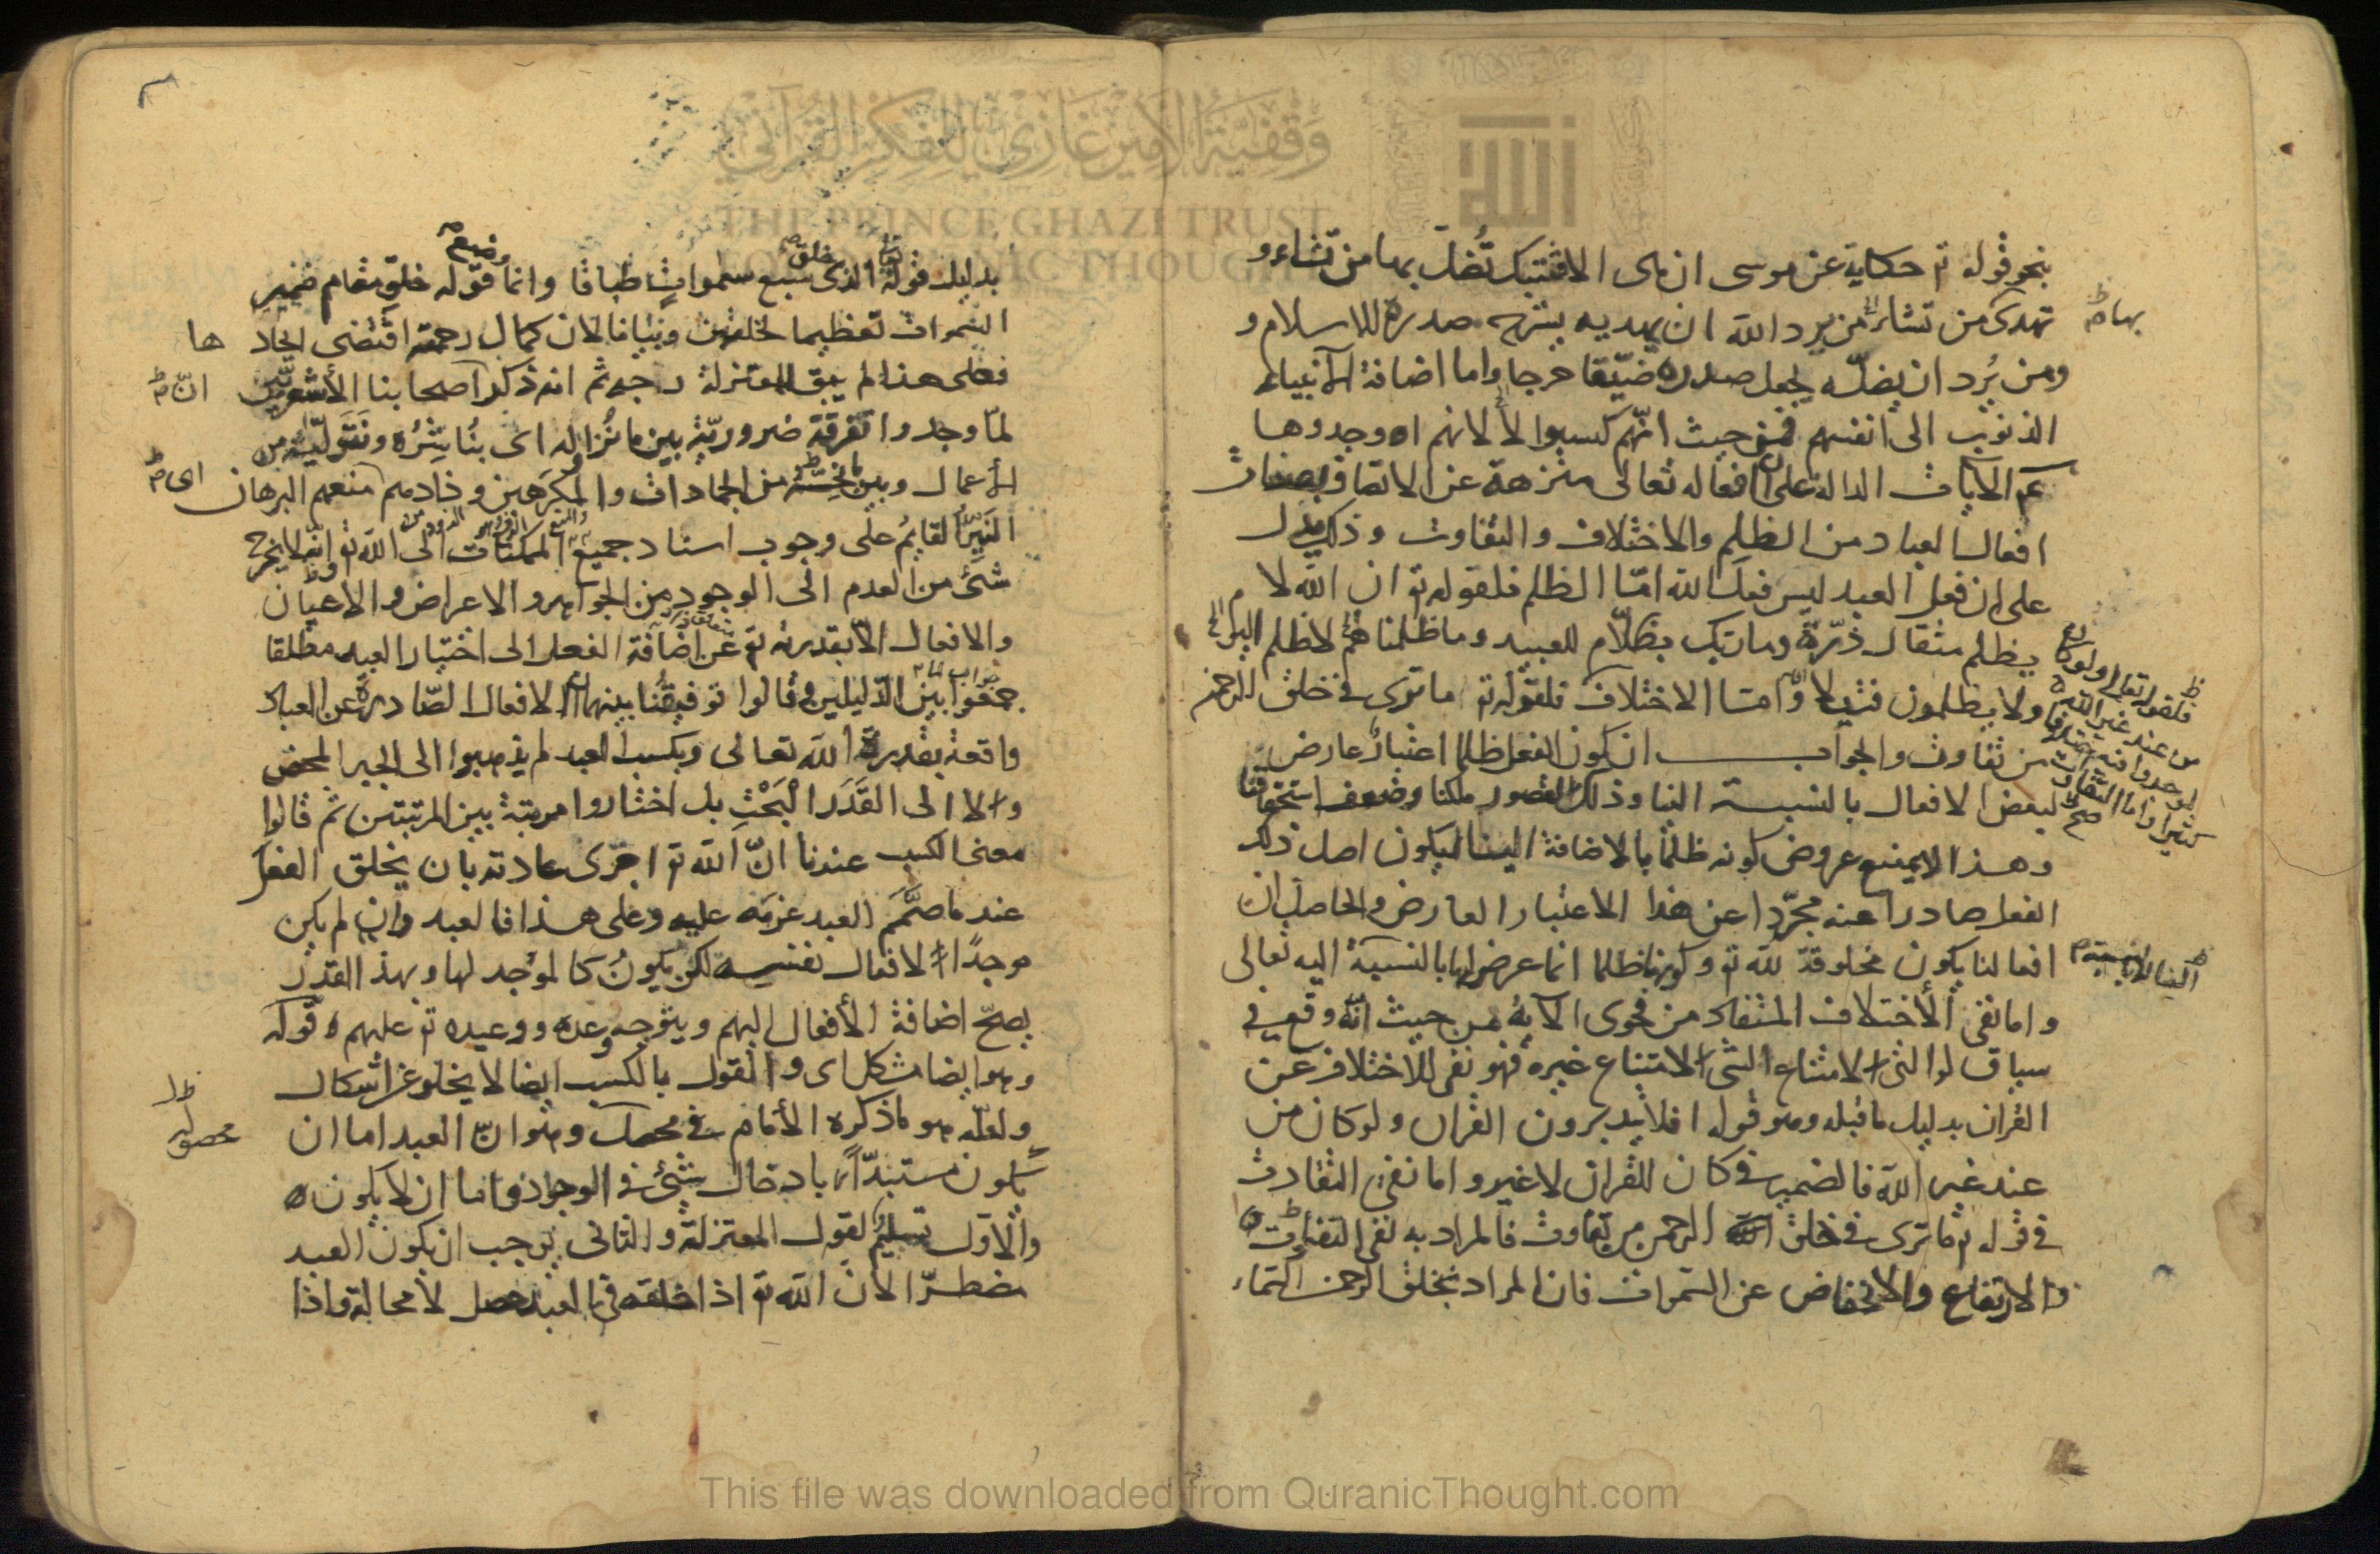 بنحو قوله تع حكاية عن موسى ان هى الا فتنتك تُضلّ بها من تشاء و
تهدى من تشاء من يرد الله ان يهديه يشرح صدره للاسلام و
بها صح
ومن يُرد ان يضلّه يجعل صدره ضيّقا حرجا واما اضافة الانبياء
الذنوب الى انفسهم فمن حيث انّهم كسبوا لا لانهم اوجدوها
الايات الدالة على ان افعاله تعالى منزهة عن الاتصاف بصفات
افعال العباد من الظلم والاختلاف والتفاوت وذلك يدل
على ان فعل العبد ليس فعل الله امّا الظلم فلقوله تع ان الله لا
يظلم مثقال ذرّة وما ربّك بظلّام للعبيد وما ظلمناهم لا ظلم اليوم
ولا يظلمون فتيلا وامّا الاختلاف فلقوله تع ما ترى فى خلق الرحمن
فلقوله تعالى ولو كان
من عند غير الله
لوجدوا فيه اختلافا
كثيرا واما التفاوت
صح
من تفاوت والجواب ان كون الفعل ظلما اعتبار عارض
لبعض الافعال بالنسبة الينا وذلك لقصور ملكنا وضعف استحقاقنا
وهذا لا يمنع عروض كونه ظلما بالاضافة الينا ليكون اصل ذلك
الفعل صادرا عنه مجرّدا عن هذا الاعتبار العارض والحاصل ان
افعالنا يكون مخلوقة لله تع وكونها ظلما انما عرض لها بالنسبة اليه تعالى
الينا لا بالنسبة
واما نفى الاختلاف المستفاد من فحوى الآية من حيث انّه وقع فى
سياق لو التى لامتناع الشئ لامتناع غيره فهو نفى للاختلاف عن
القران بدليل ما قبله وهو قوله افلا يتدبرون القران ولو كان من
عند غير الله فالضمير فى كان للقران لا غير واما نفى التفاوت
فى قوله تع ما ترى فى خلق الرحمن من تفاوت فالمراد به نفى التفاوت
والارتفاع والانخفاض عن السموات فان المراد بخلق الرحمن السماء
بدليل قوله تعا الذى خلق سبع سموات طباقا وانما وضع قوله خلق مقام ضمير
السموات تعظيما لخلقهن وبيانا لان كمال رحمته اقتضى ايجاد
ها
فعلى هذا لم يبق للمعتزلة وجه ثم انه ذكر اصحابنا الأشعريّين
انّ صح
لمّا وجدوا تفرقة ضروريّة بين ما نُزاوله اى نُباشِرُه ونَتَولّيه من
الأعمال وبين ما نحسّه من الجمادات والمكرَهين وذادهم منعهم البرهان
اى صح
النَيّر القايمُ على وجوب اسناد جميع الممكنات الى الله تع وانّه لا يخرج
شئ من العدم الى الوجود من الجواهر والاعراض والاعيان
والافعال الّا بقدرته تع عن اضافة الفعل الى اختيار العبد مطلقا
جواب لما
جمعوا بين الدّليلين وقالوا توفيقًا بينهما الافعال الصّادرة عن العباد
واقعة بقدرة الله تعالى وبكسب العبد لم يذهبوا الى الجبر المحض
ولا الى القَدَر الْبَحْتِ بل اختاروا مرتبة بين المرتبتين ثم قالوا
معنى الكسب عندنا انّ الله تع اجرى عادته بان يخلق الفعل
عند ما صَمَّمَ العبد عزمَه عليه وعلى هذا فالعبد وان لم يكن
موجدًا لافعال نفسه لكن يكونُ كالموجد لها وبهذا القدر
يصحّ اضافة الأفعال اليهم ويتوجه وعده ووعيده تع عليهم قوله
وهو ايضا مشكل اى والقول بالكسب ايضا لا يخلو عن اشكال
ولعلّه هو ما ذكره الأمام فى محصل وهو انّ العبد اما ان
محصوله
يكون مستبدّا بادخال شئ فى الوجود واما ان لا يكون
والاوّل تسليمُ لقول المعتزلة والثانى يوجب ان يكون العبد
مضطرّا لان الله تع اذا خلقه فى العبد حصل لا محالة واذا
وَقْفِيَّةُ الأَمِيرِ غَازِي لِلْفِكْرِ القُرْآنِي
THE PRINCE GHAZI TRUST
FOR QURANIC THOUGHT
This file was downloaded from QuranicThought.com